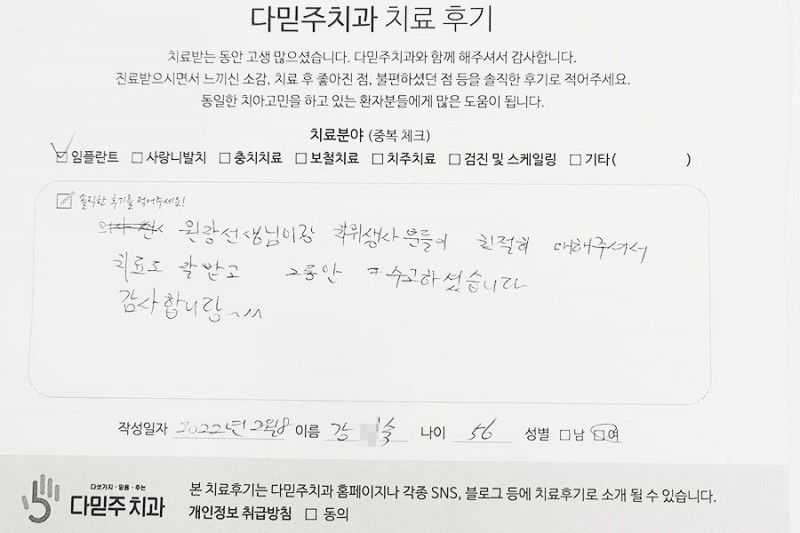 다믿주치과 치료 후기
치료받는 동안 고생 많으셨습니다. 다믿주치과와 함께 해주셔서 감사합니다.
진료받으시면서 느끼신 소감, 치료 후 좋아진 점, 불편하셨던 점 등을 솔직한 후기로 적어주세요.
동일한 치아고민을 하고 있는 환자분들에게 많은 도움이 됩니다.
치료분야 (중복 체크)
☑ 임플란트 □ 사랑니발치 □ 충치치료 □ 보철치료 □ 치주치료 □ 검진 및 스케일링 □ 기타( )
솔직한 후기를 적어주세요!
원장선생님이랑 학위생사 분들이 친절히 대해주셔서
치료도 잘 받고 그동안 수고하셨습니다
감사합니당 ^^
작성일자 2022년 2월 8 이름 강 술 나이 56 성별 □ 남 □ 여
다섯가지 · 믿음 · 주는
다믿주치과
본 치료후기는 다믿주치과 홈페이지나 각종 SNS, 블로그 등에 치료후기로 소개 될 수 있습니다.
개인정보 취급방침 □ 동의